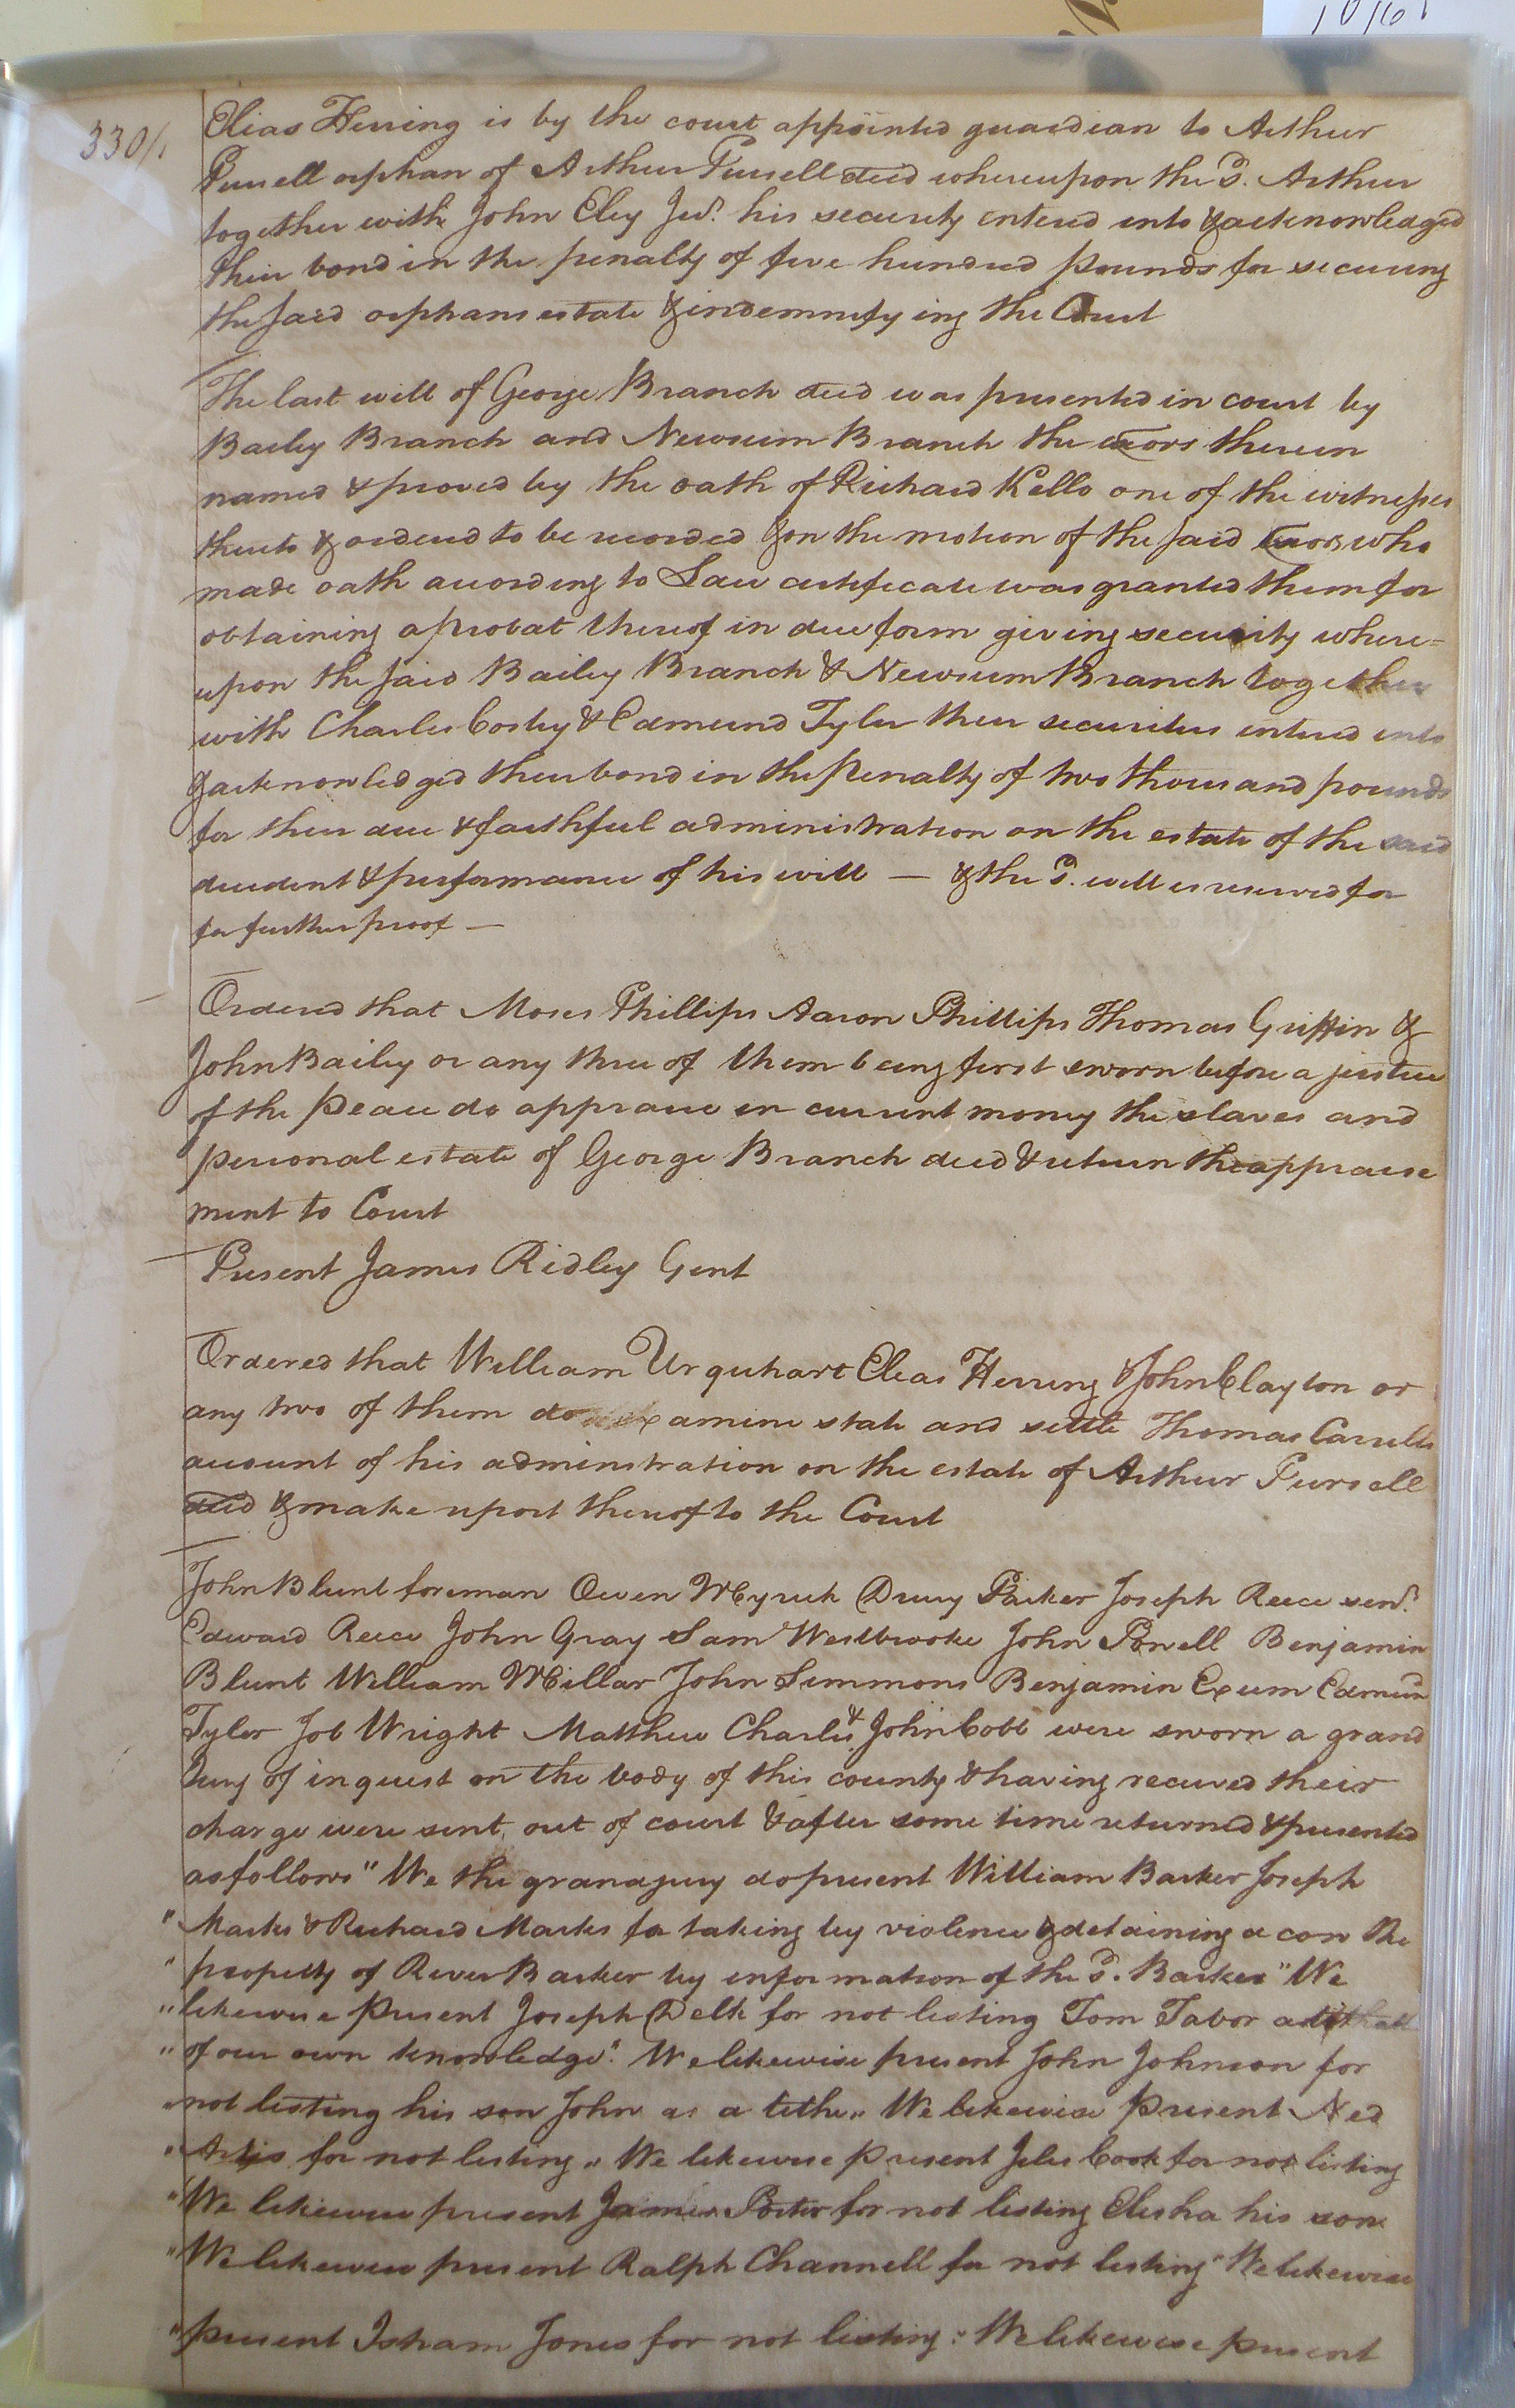 330/
Elias Herring is by the court appointed guardian to Arthur
Pursell orphan of Arthur Pursell decd whereupon the sd. Arthur
together with John Eley Jur. his security entered into & acknowledged
their bond in the penalty of five hundred pounds for securing
the said orphans estate & indemnifying the Court
The last will of George Branch decd was presented in court by
Bailey Branch and Newsum Branch the exors therein
named & proved by the oath of Richard Kello one of the witnesses
thereto & ordered to be recorded & on the motion of the said exors who
made oath according to Law certificate was granted them for
obtaining a probat thereof in due form giving security where=
upon the said Bailey Branch & Newsum Branch together
with Charles Cosby & Edmund Tyler their securities entered into
& acknowledged their bond in the penalty of two thousand pounds
for their due & faithful administration on the estate of the said
decedent & performance of his will — & the sd. will is reserved for
for further proof —
Ordered that Moses Phillips Aaron Phillips Thomas Griffin &
John Bailey or any three of them being first sworn before a justice
of the peace do appraise in current money the slaves and
personal estate of George Branch decd & return the appraise
ment to Court
Present James Ridley Gent
Ordered that William Urquhart Elias Herring & John Clayton or
any two of them do examine state and settle Thomas Carrells
account of his administration on the estate of Arthur Pursell
decd & make report thereof to the Court
John Blunt foreman Owen Myrick Drury Parker Joseph Reece senr.
Edward Reece John Gray Sam Westbrooke John Powell Benjamin
Blunt William Millar John Simmons Benjamin Exum Edmund
Tyler Job Wright Matthew Charles & John Cobb were sworn a grand
Jury of inquest on the body of this county & having received their
charge were sent out of court & after some time returned & presented
as follows "We the grand jury do present William Barker Joseph
" Marks & Richard Marks for taking by violence & detaining a cow the
" property of River Barker by information of the sd. Barker" We
" likewise present Joseph Delk for not listing Tom Tabor
" of our own knowledge" We likewise present John Johnson for
" not listing his son John as a tithe" We likewise present Ned
" Artis for not listing" We likewise present Jiles Cook for not listing
" We likewise present James Porter for not listing Elisha his son
" We likewise present Ralph Channell for not listing" We likewise
" present Isham Jones for not listing" We likewise present